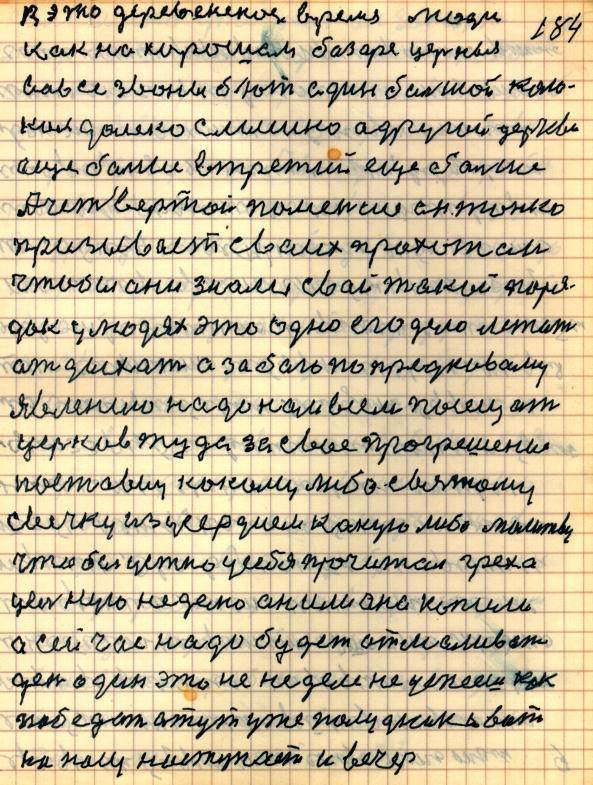 В это деревенское время люди
184
как на хорошам базаре церквы
вовсе звоны бьют адин балшой коло-
кол далеко слышно а другой церкви
еще балше втретий еще балше
Ачетвертой поменше антонко
призывает сваих прохожан
чтобы ани знали свой такой поря-
док улюдях это одно его дело летат
атдыхат а забаль по предковаму
явлению надо нам всем посещат
церков туда за свое прогрешение
поставиш какому либо святому
свечку изусердием какую либо молитву
что бы устно усебя прочитал греха
целную неделю анилиана копили
а сейчас надо будет отмаливат
ден один это не неделе не успееш как
победат а тут уже полудник а вот
на нашу наступает и вечер